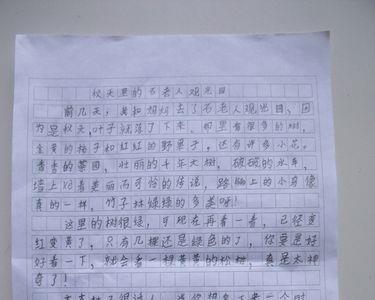 秋天里的石老人观光园
前几天，我和妈妈去了石老人观光园，因
为是秋天，叶子就落了下来。那里有很多的树，
金黄的柿子和红红的野果子，还有许多小花。
香香的茶园，壮丽的千年大树，破破的水车，
墙上有着美丽而可怕的传说，路上的小鸟像
真的一样，竹子林绿绿的多美呀！
这里的树很绿，可现在再看一看，已经变
红变黄了，只有几棵还是绿色的了，你要是好
好看一下，就会看一棵黄黄的松树，真是太神
奇了！